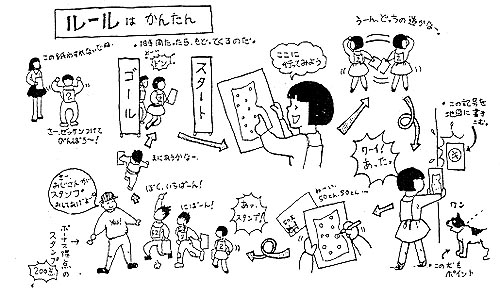 ルールは かんたん
・時間だったら、もどってくるのだ。
うーん、どっちの道かな〜。
ここに
行ってみよう
よーい
ドン!
ゴール
スタート
さー、ゼッケンつけて
がんばろ〜!
・この記号を
地図に書き
こむ。
ワーイ!
あった。
まにあうかな〜。
さー、
おじさんが
スタンプを
おしてあげよう
ぼく、いちばーん!
にばーん!
あっ、
スタンプだ!
わーい、
50てん、50てん…
50点
You!
ボーナス得点の
スタンプ
200点
ワン
・この犬も
ポイント